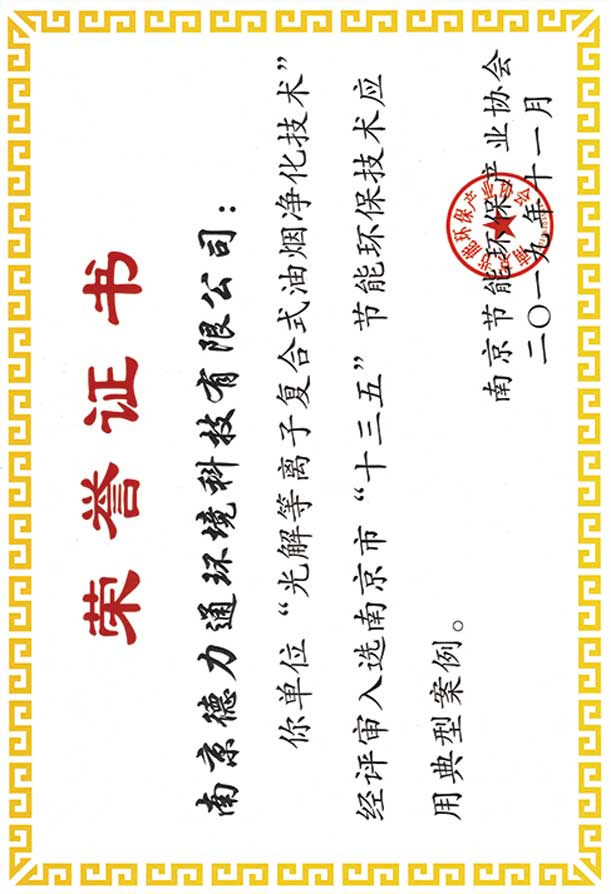 荣誉证书
南京德力通环境科技有限公司：
你单位“光解等离子复合式油烟净化技术”
经评审入选南京市“十三五”节能环保技术应
用典型案例。
南京节能环保产业协会
二〇一九年十一月
南京节能环保产业协会